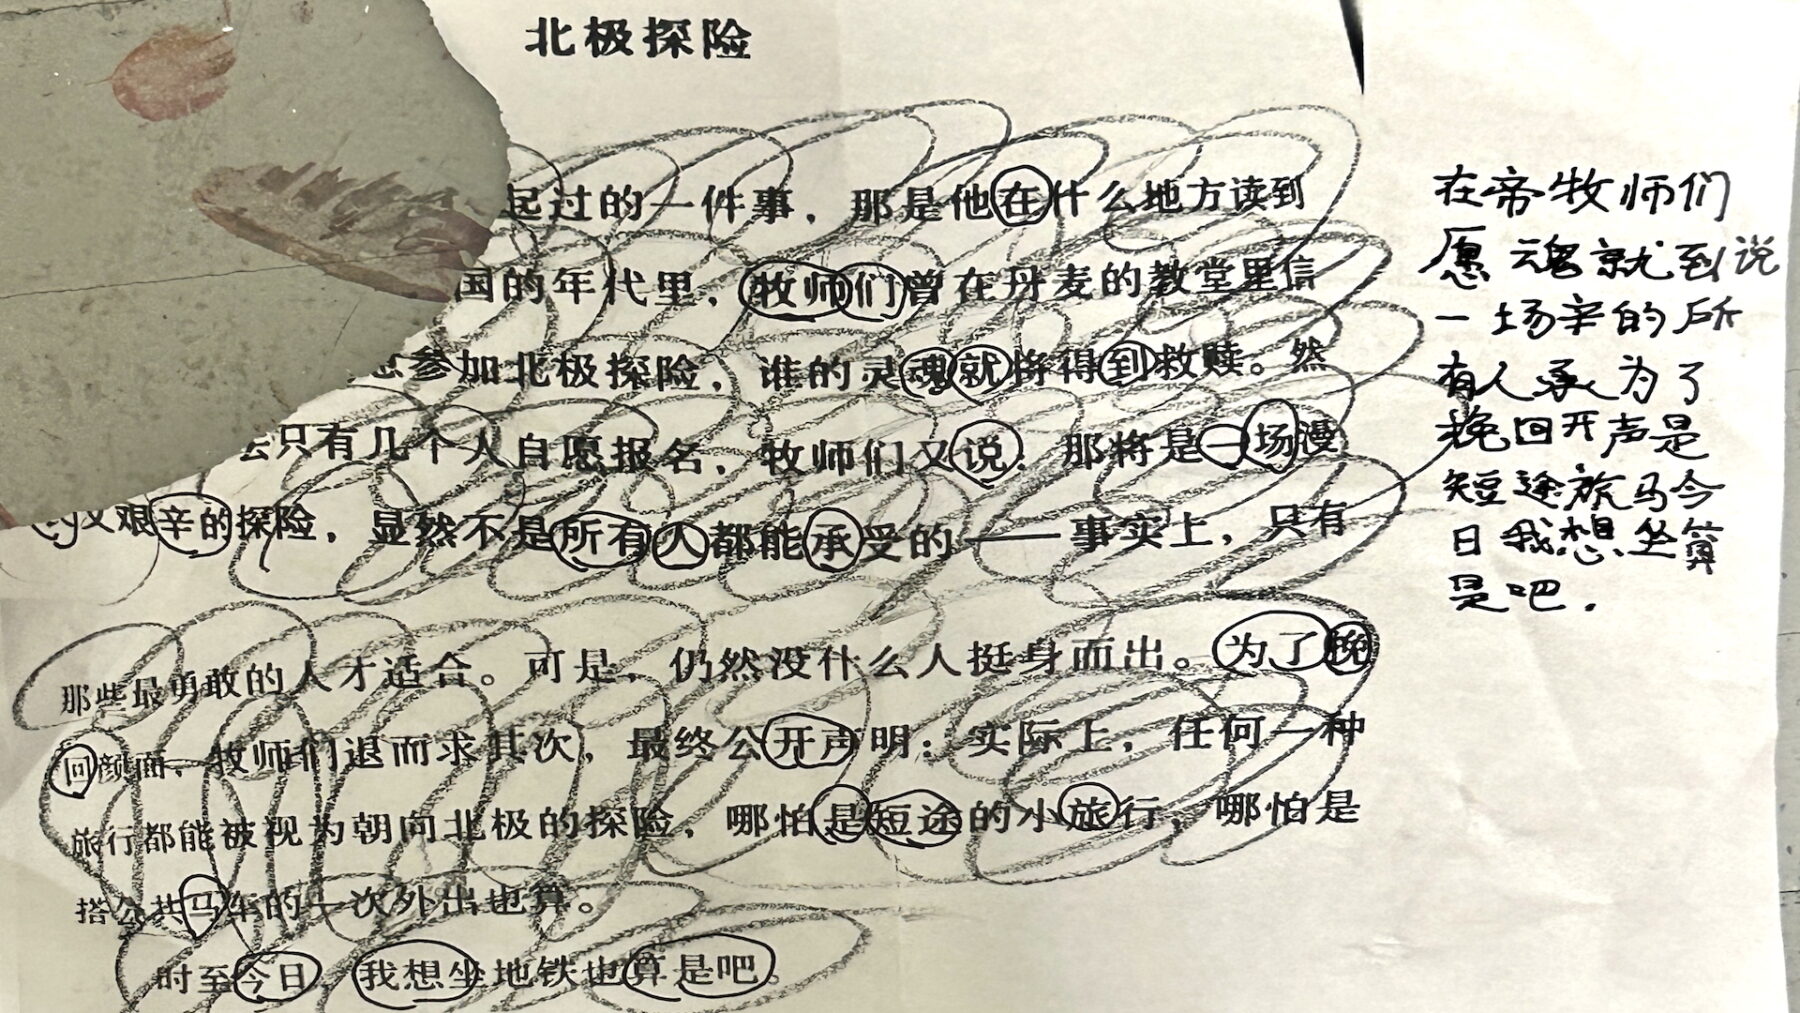 北极探险
起过的一件事，那是他在什么地方读到
国的年代里，牧师们曾在丹麦的教堂里信
参加北极探险，谁的灵魂就将得到救赎。然
会只有几个人自愿报名，牧师们又说，那将是一场漫
又艰辛的探险，显然不是所有人都能承受的——事实上，只有
那些最勇敢的人才适合。可是，仍然没什么人挺身而出。为了挽
回颜面，牧师们退而求其次，最终公开声明：实际上，任何一种
旅行都能被视为朝向北极的探险，哪怕是短途的小旅行，哪怕是
搭公共马车的一次外出也算。
时至今日，我想坐地铁也算是吧。
在帝牧师们
愿魂就到说
一场辛的所
有人承为了
挽回开声是
短途旅马今
日我想坐算
是吧．